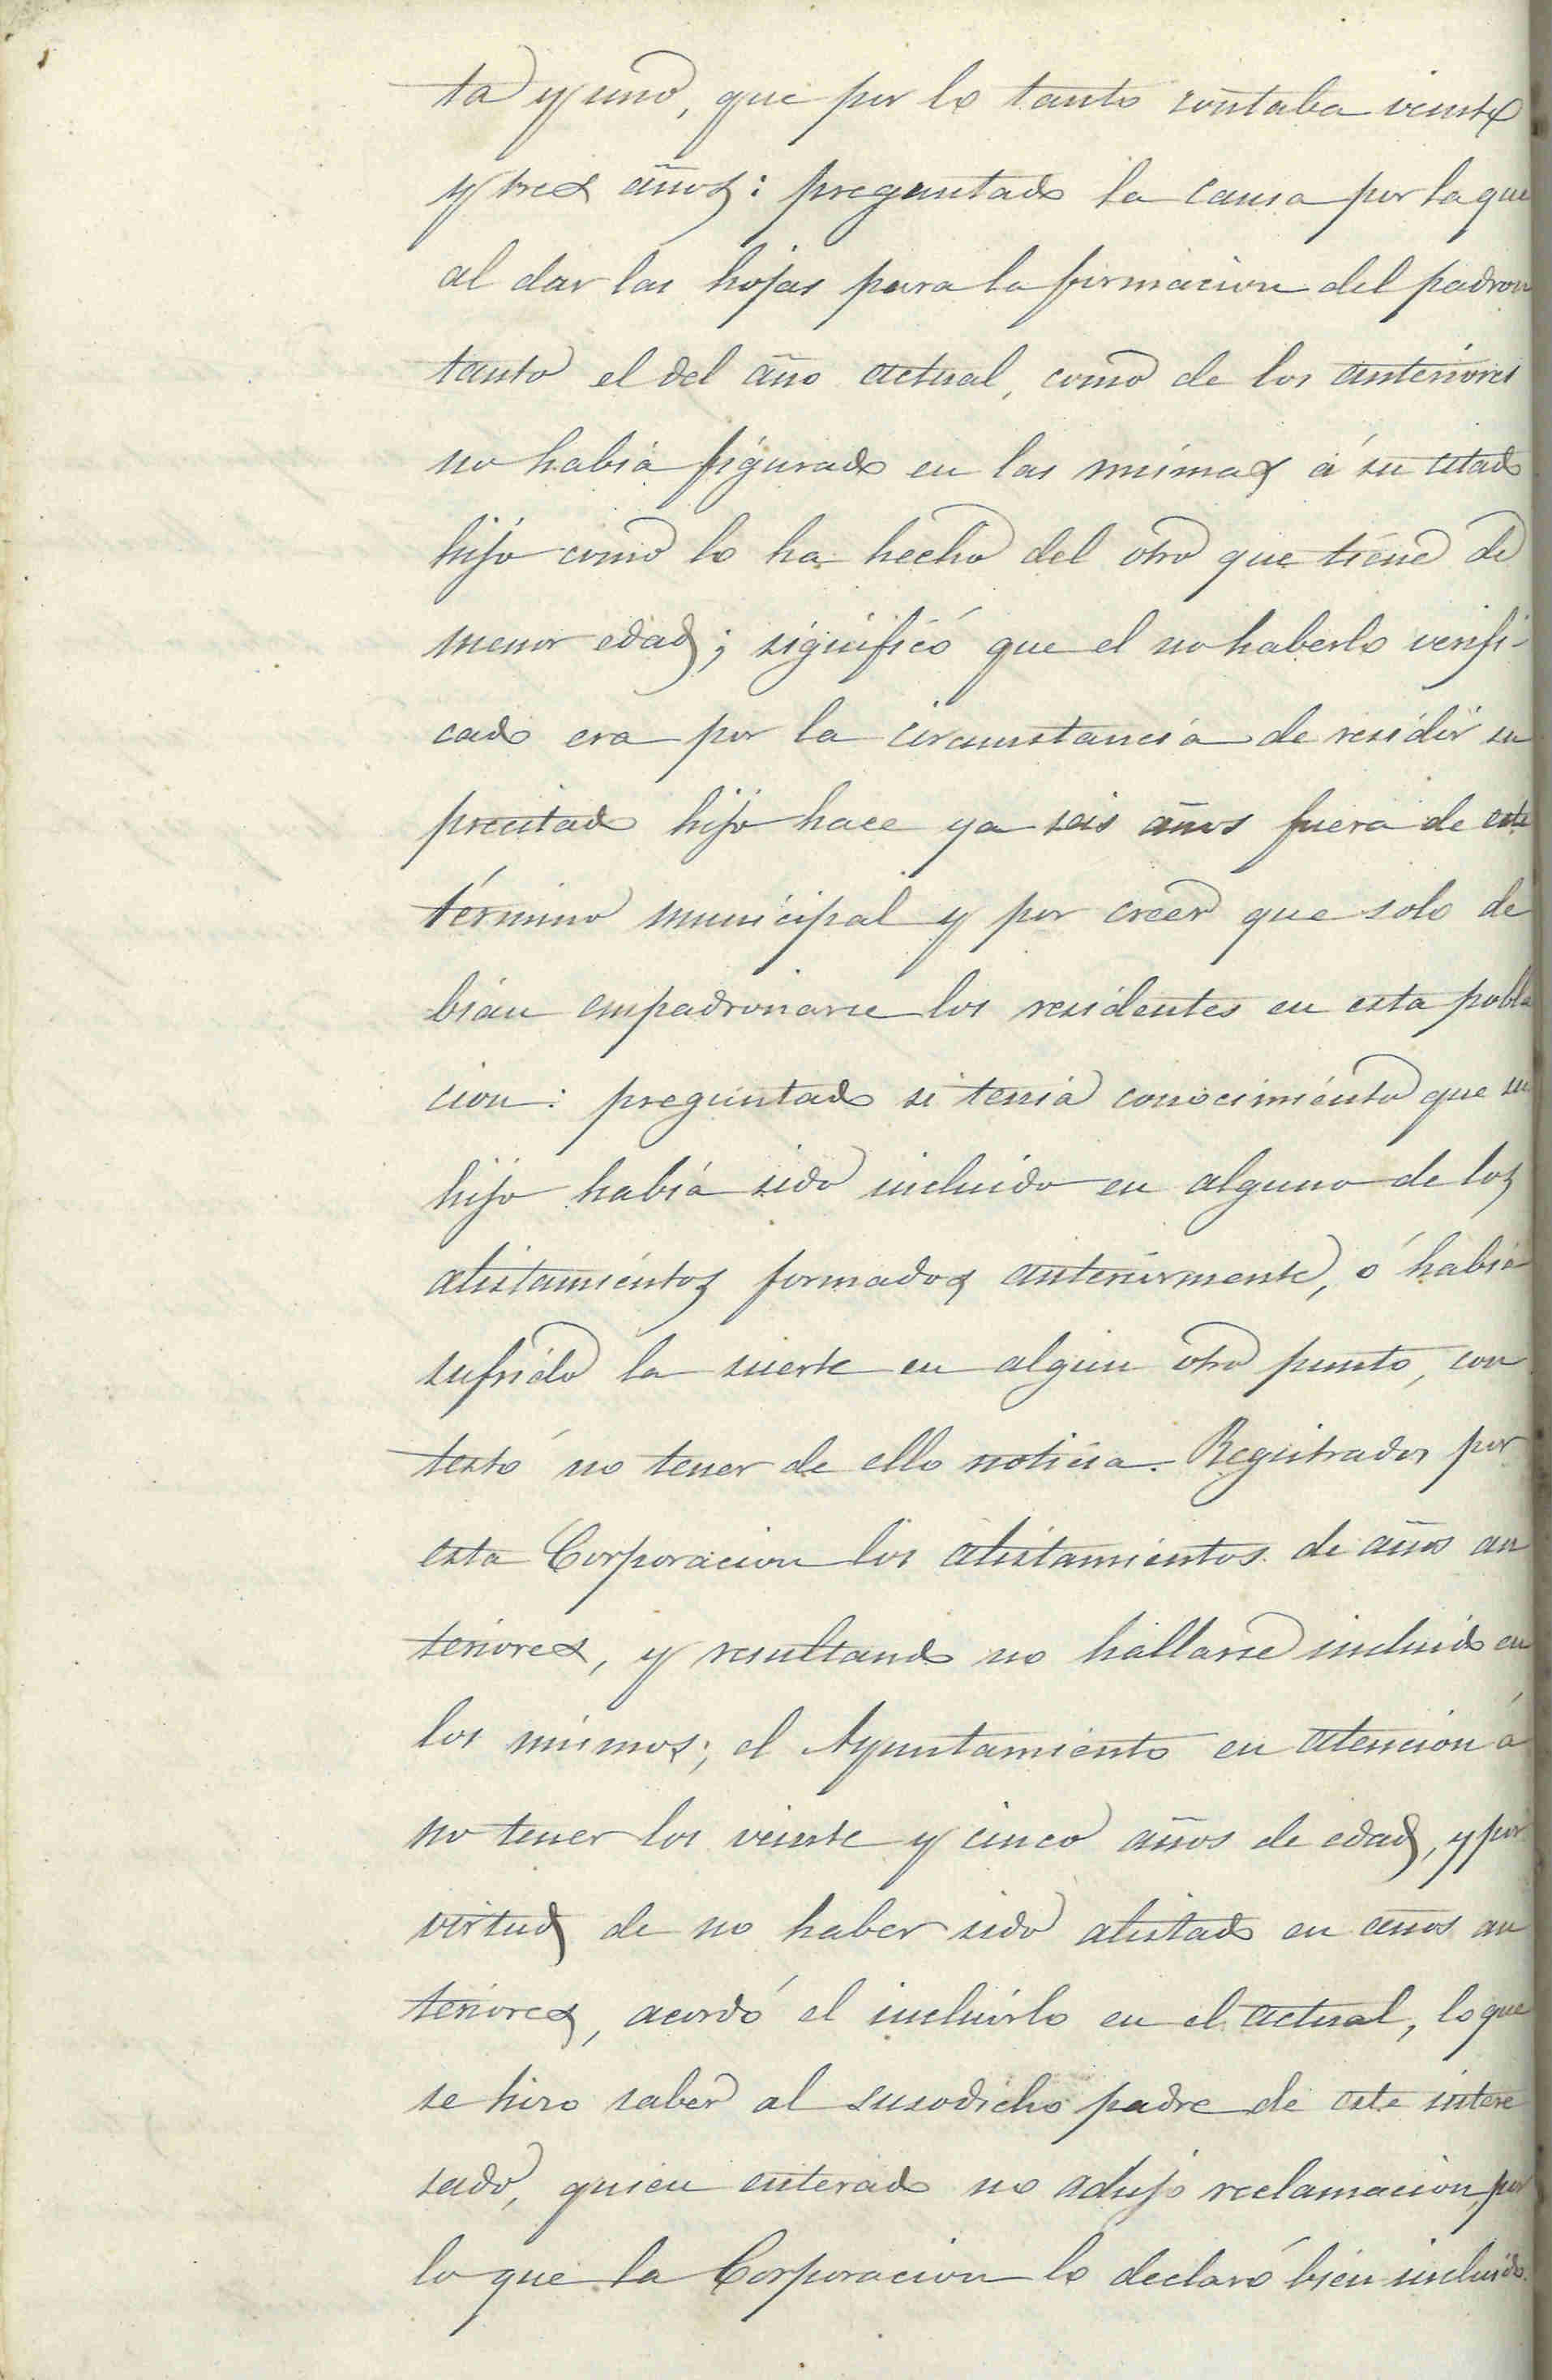 ta y uno, que por lo tanto contaba veinte
y tres años: preguntado la causa por la que
al dar las hojas para la formacion del padron
tanto el del año actual, como de los anteriores
no habia figurado en las mismas á su citado
hijo como lo ha hecho del otro que tiene de
menor edad; significó que el no haberlo verifi-
cado era por la circunstancia de residir su
precitado hijo hace ya seis años fuera de este
término municipal y por creer que solo de
bian empadronarse los residentes en esta pobla
cion: preguntado si tenia conocimiento que su
hijo habia sido incluido en alguno de los
alistamientos formados anteriormente, ó habia
sufrido la suerte en algun otro punto, con
testó no tener de ello noticia. Registrados por
esta Corporacion los alistamientos de años an
teriores, y resultando no hallarse incluido en
los mismos; el Ayuntamiento en atencion á
no tener los veinte y cinco años de edad, y por
virtud de no haber sido alistado en años an
teriores, acordó el incluirlo en el actual, lo que
se hizo saber al susodicho padre de este intere
sado, quien enterado no adujo reclamacion, por
lo que la Corporacion lo declaró bien incluido.